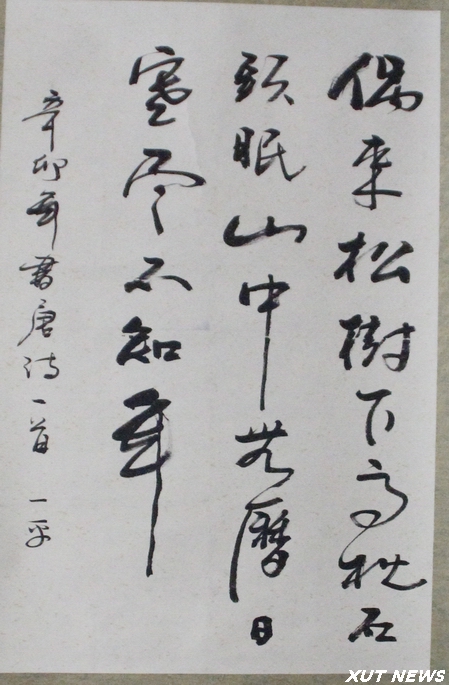 偶来松樹下高枕石
頭眠山中無曆日
寒尽不知年
辛卯年書唐诗一首 一平
XUT NEWS